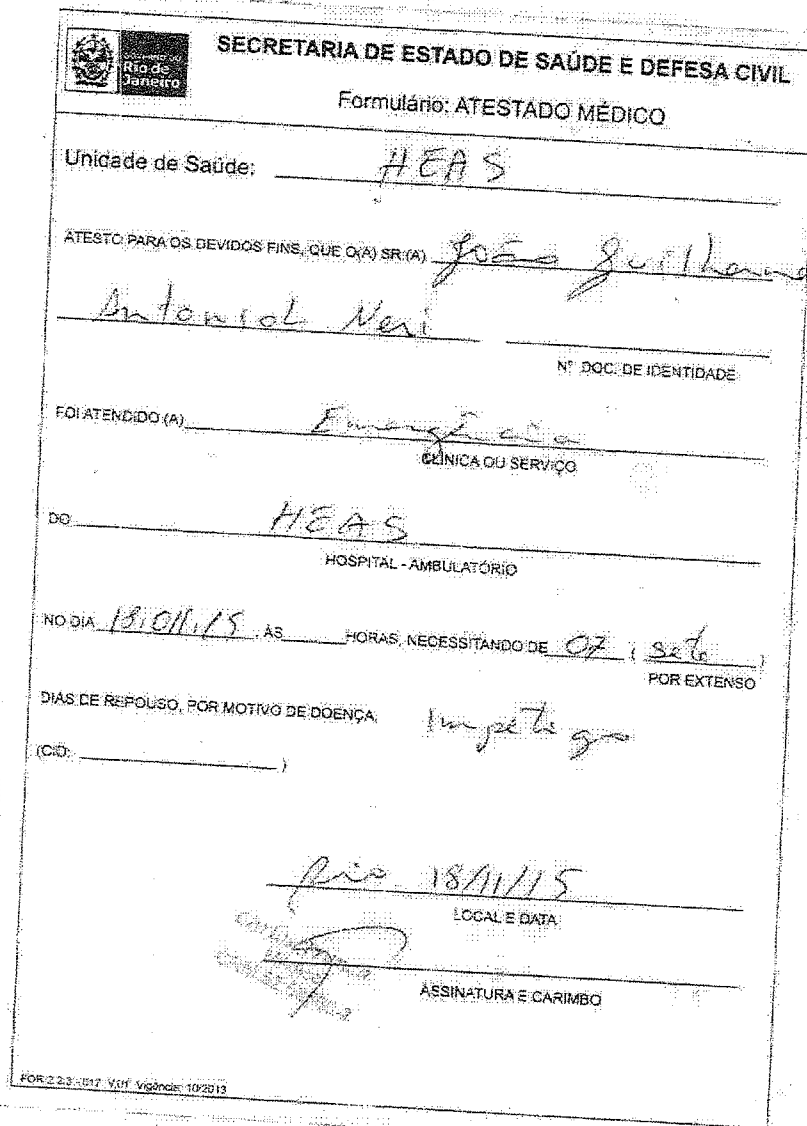 Rio de Janeiro
SECRETARIA DE ESTADO DE SAÚDE E DEFESA CIVIL
Formulário: ATESTADO MÉDICO
Unidade de Saúde: HEAS
ATESTO PARA OS DEVIDOS FINS, QUE O(A) SR.(A) João Guilherme
Neri
Nº DOC. DE IDENTIDADE
FOI ATENDIDO (A) Emergência
CLÍNICA OU SERVIÇO
DO HEAS
HOSPITAL - AMBULATÓRIO
NO DIA , ÀS HORAS, NECESSITANDO DE 07 ( sete )
POR EXTENSO
DIAS DE REPOUSO, POR MOTIVO DE DOENÇA, Impetigo
(CID: )
Rio 18/11/15
LOCAL E DATA
ASSINATURA E CARIMBO
FOR 2.2.3 - 017 V.01 Vigência: 10/2013